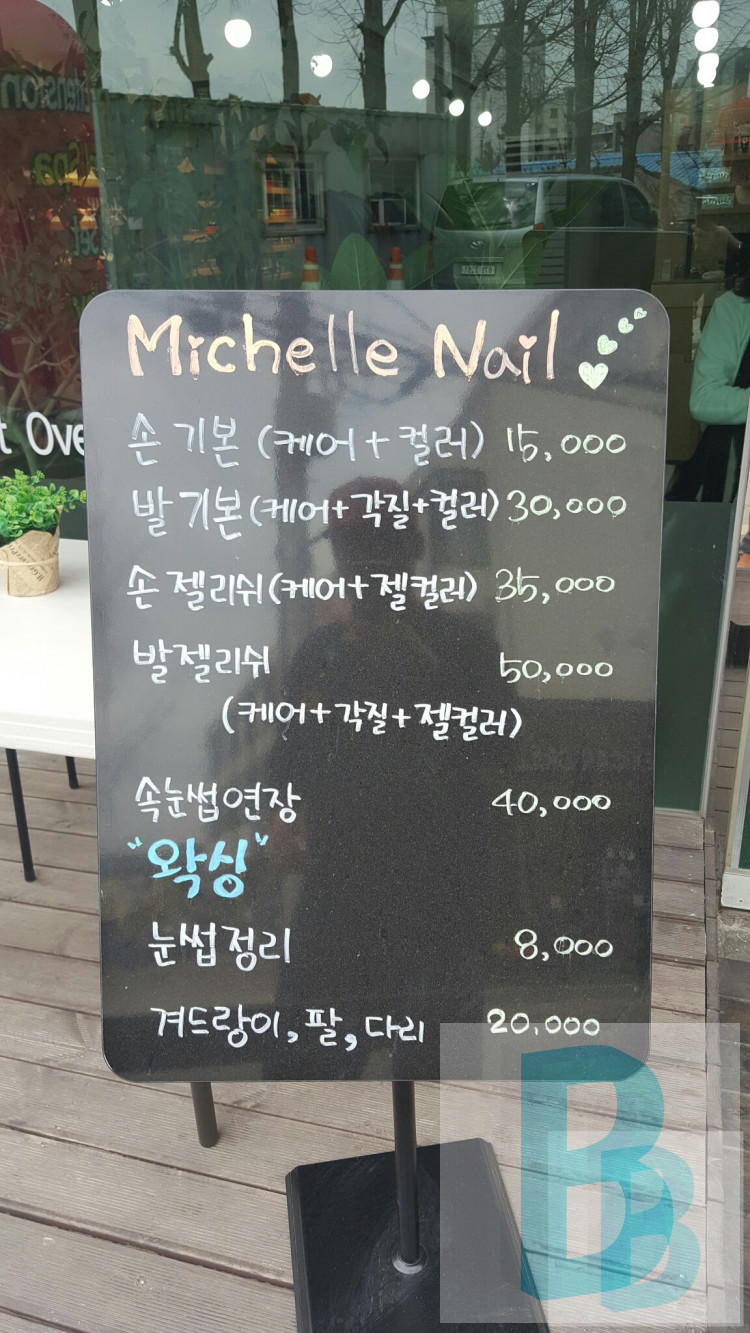 Michelle Nail
손 기본 (케어+컬러) 15,000
발 기본(케어+각질+컬러) 30,000
손 젤리쉬(케어+젤컬러) 35,000
발젤리쉬 50,000
(케어+각질+젤컬러)
속눈썹연장 40,000
"왁싱"
눈썹정리 8,000
겨드랑이, 팔, 다리 20,000
t Ove
BB